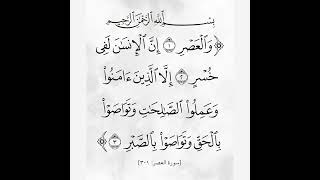 بِسْمِ اللَّهِ الرَّحْمَٰنِ الرَّحِيمِ
﴿وَٱلۡعَصۡرِ ١ إِنَّ ٱلۡإِنسَٰنَ لَفِي
خُسۡرٍ ٢ إِلَّا ٱلَّذِينَ ءَامَنُواْ
وَعَمِلُواْ ٱلصَّٰلِحَٰتِ وَتَوَاصَوۡاْ
بِٱلۡحَقِّ وَتَوَاصَوۡاْ بِٱلصَّبۡرِ ٣﴾
[سورة العصر: ١-٣]